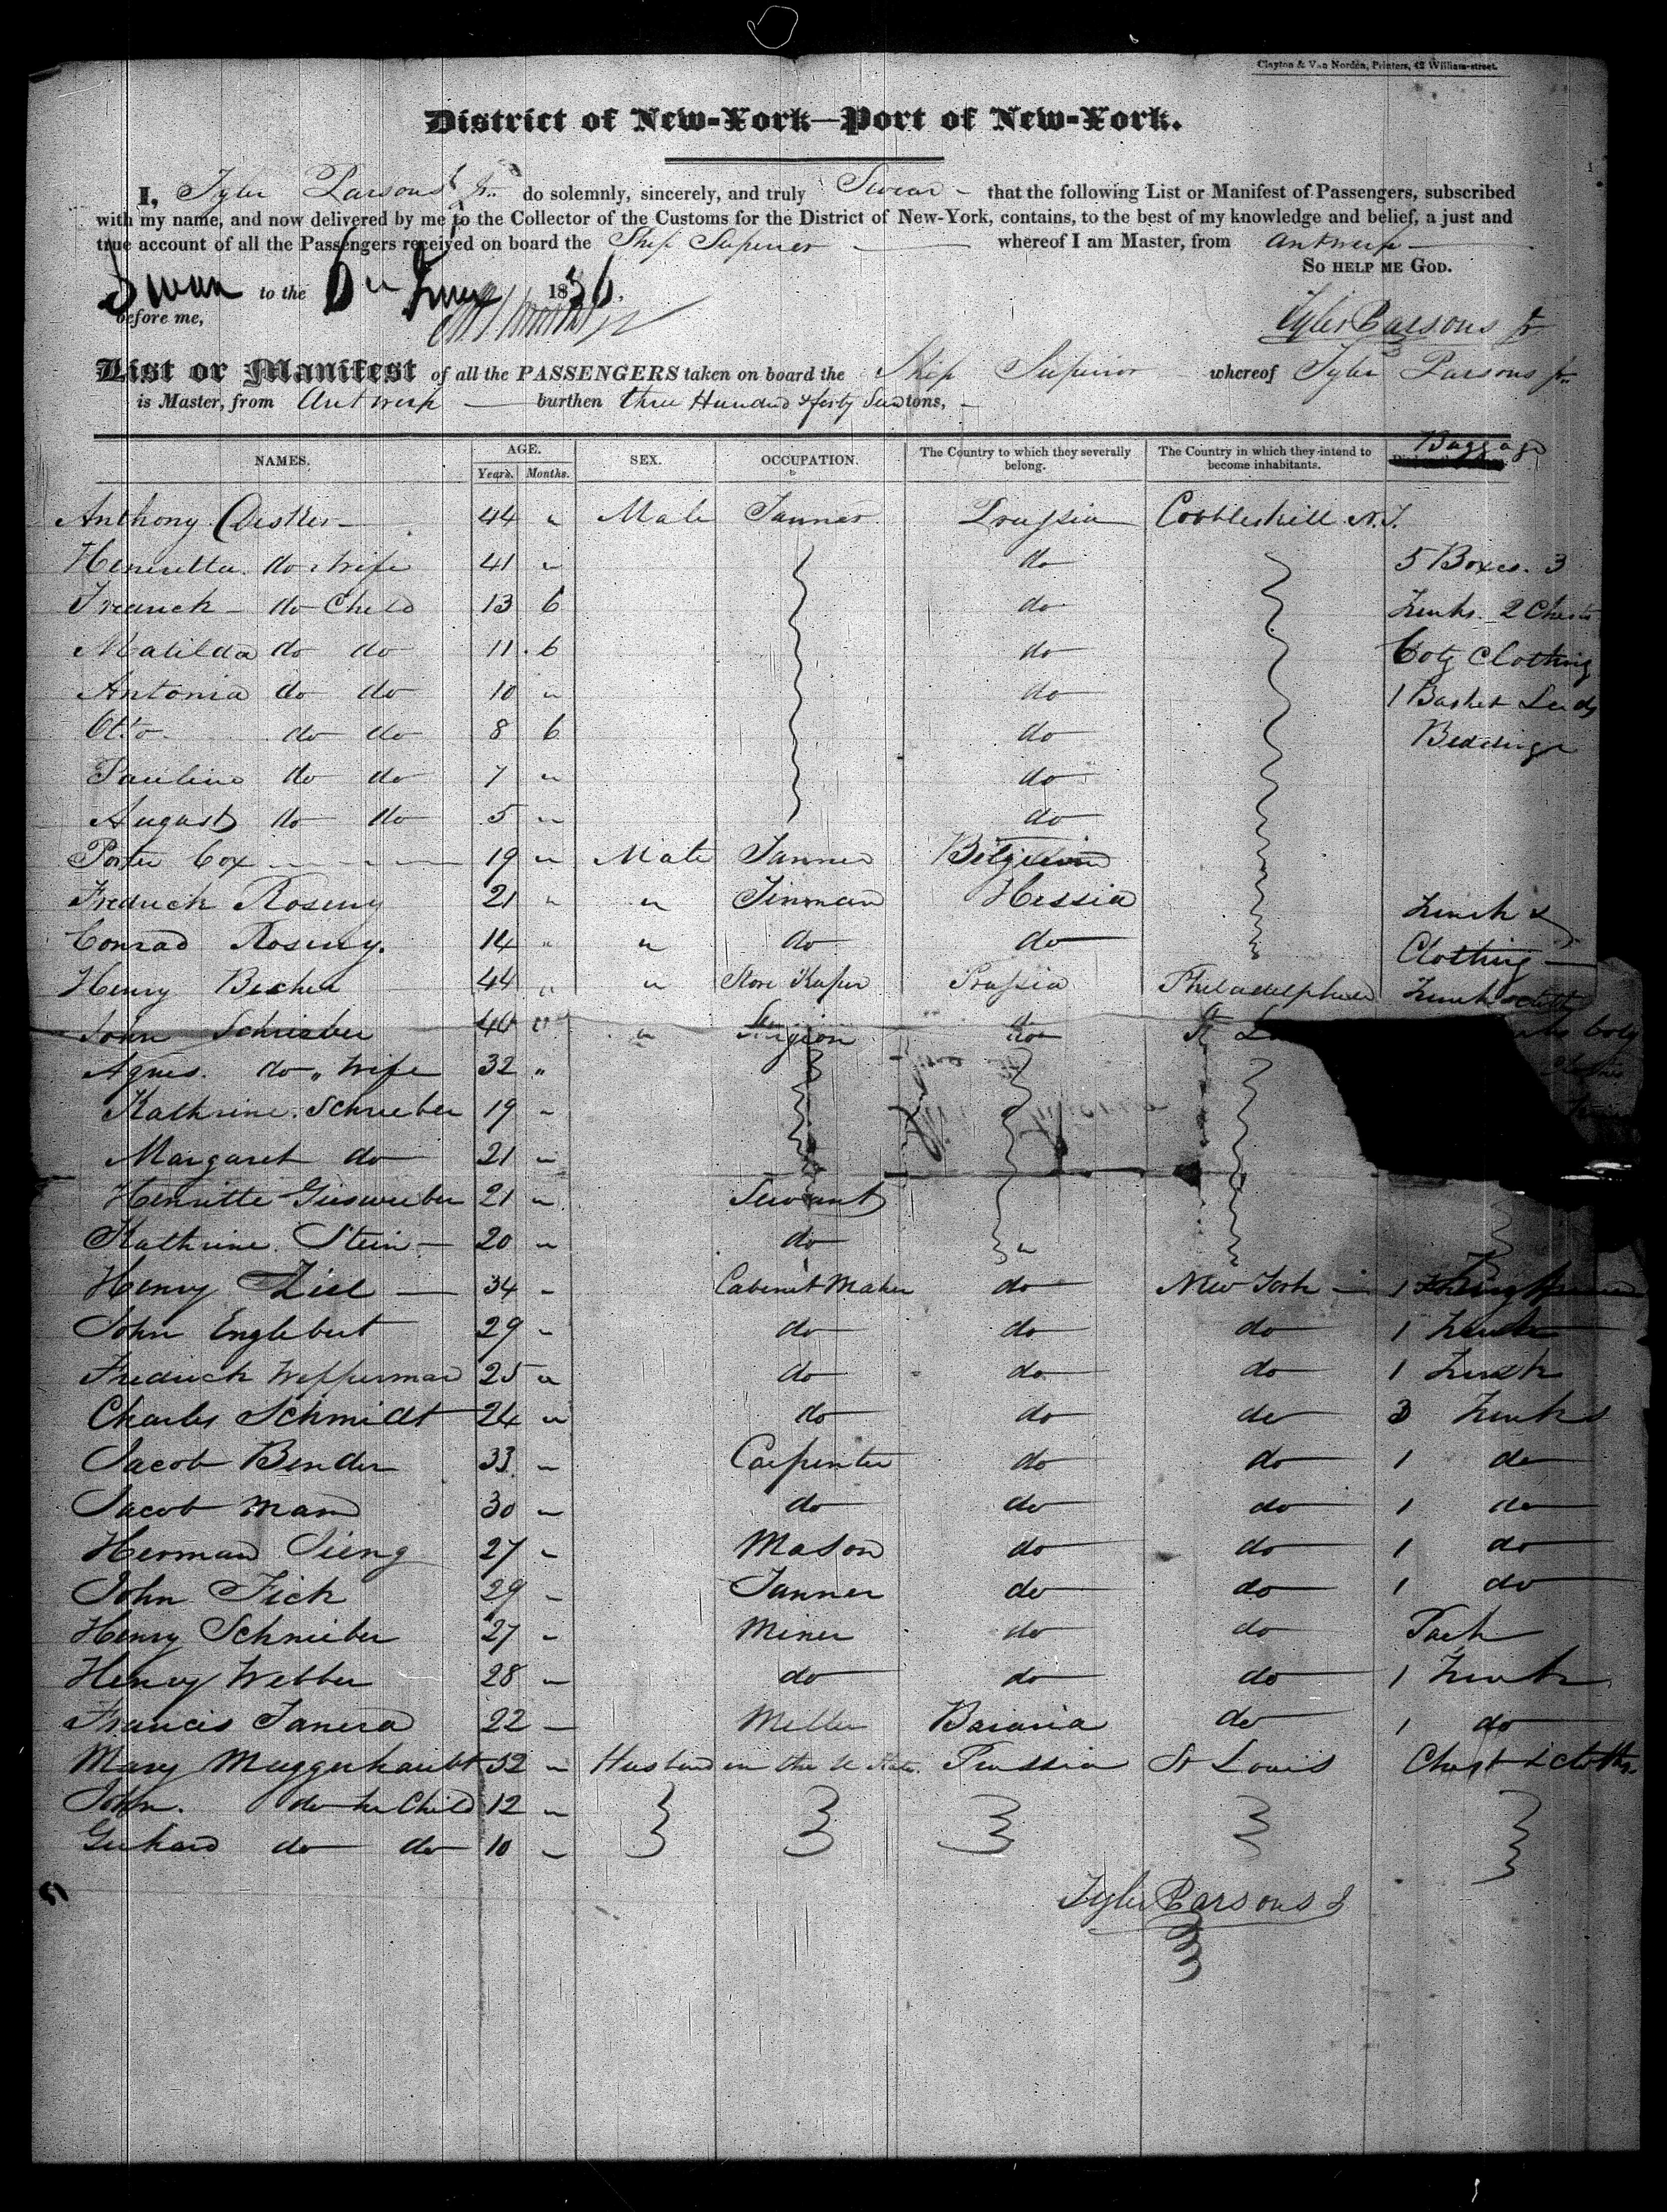 Clayton & Van Norden, Printers, 42 William-street.
District of New-York—Port of New-York.
I, Tyler Parsons Jr. do solemnly, sincerely, and truly Swear - that the following List or Manifest of Passengers, subscribed
with my name, and now delivered by me to the Collector of the Customs for the District of New-York, contains, to the best of my knowledge and belief, a just and
true account of all the Passengers received on board the Ship Superior whereof I am Master, from Antwerp
So help me God.
Sworn to the 6 June 1836,
before me,
Tyler Parsons Jr
List or Manifest of all the PASSENGERS taken on board the Ship Superior whereof Tyler Parsons Jr.
is Master, from Antwerp burthen three Hundred & forty tons,
NAMES. AGE. SEX. OCCUPATION. The Country to which they severally belong. The Country in which they intend to become inhabitants. Baggage
Years. Months.
Anthony 44 " Male Tanner Prussia Cobbleskill N.Y.
Henrietta do wife 41 " do 5 Boxes. 3
Fredrick do Child 13 6 do Trunks. 2 Chests
Matilda do do 11 6 do Cotg Clothing
Antonia do do 10 " do 1 Basket
Otto do do 8 6 do Bedding
Pauline do do 7 " do
August do do 5 " do
Porter Cox 19 " Male Tanner Belgium
Fredrick Roseny 21 " " Tinman Hessia Trunk &
Conrad Roseny. 14 " " do do Clothing
Henry Becher 44 " " Store Keeper Prussia Philadelphia Trunk
John Schrieber 40 " " Surgeon do St
Agnes. do " wife 32 "
Kathrine. Schrieber 19 "
Margaret do 21 "
Henritte 21 " Servant
Kathrine. Stein 20 " do "
Henry 34 " Cabinet Maker do New York 1
John Englebert 29 " do do do 1 Trunk
Fredrick Wefferman 25 " do do do 1 Trunk
Charles Schmidt 24 " do do do 3 Trunks
Jacob Bender 33 " Carpenter do do 1 do
Jacob Man 30 " do do do 1 do
Herman Sieng 27 " Mason do do 1 do
John Fick 29 " Tanner do do 1 do
Henry Schnieber 27 " Miner do do Pack
Henry Webber 28 " do do do 1 Trunk
Francis Janera 22 " Miller Bavaria do 1 do
Mary Muggerhaubt 32 " Husband in the U States. Prussia St Louis Chest & cloths
John. do her Child 12 "
Gerhard do do 10 "
Tyler Parsons J